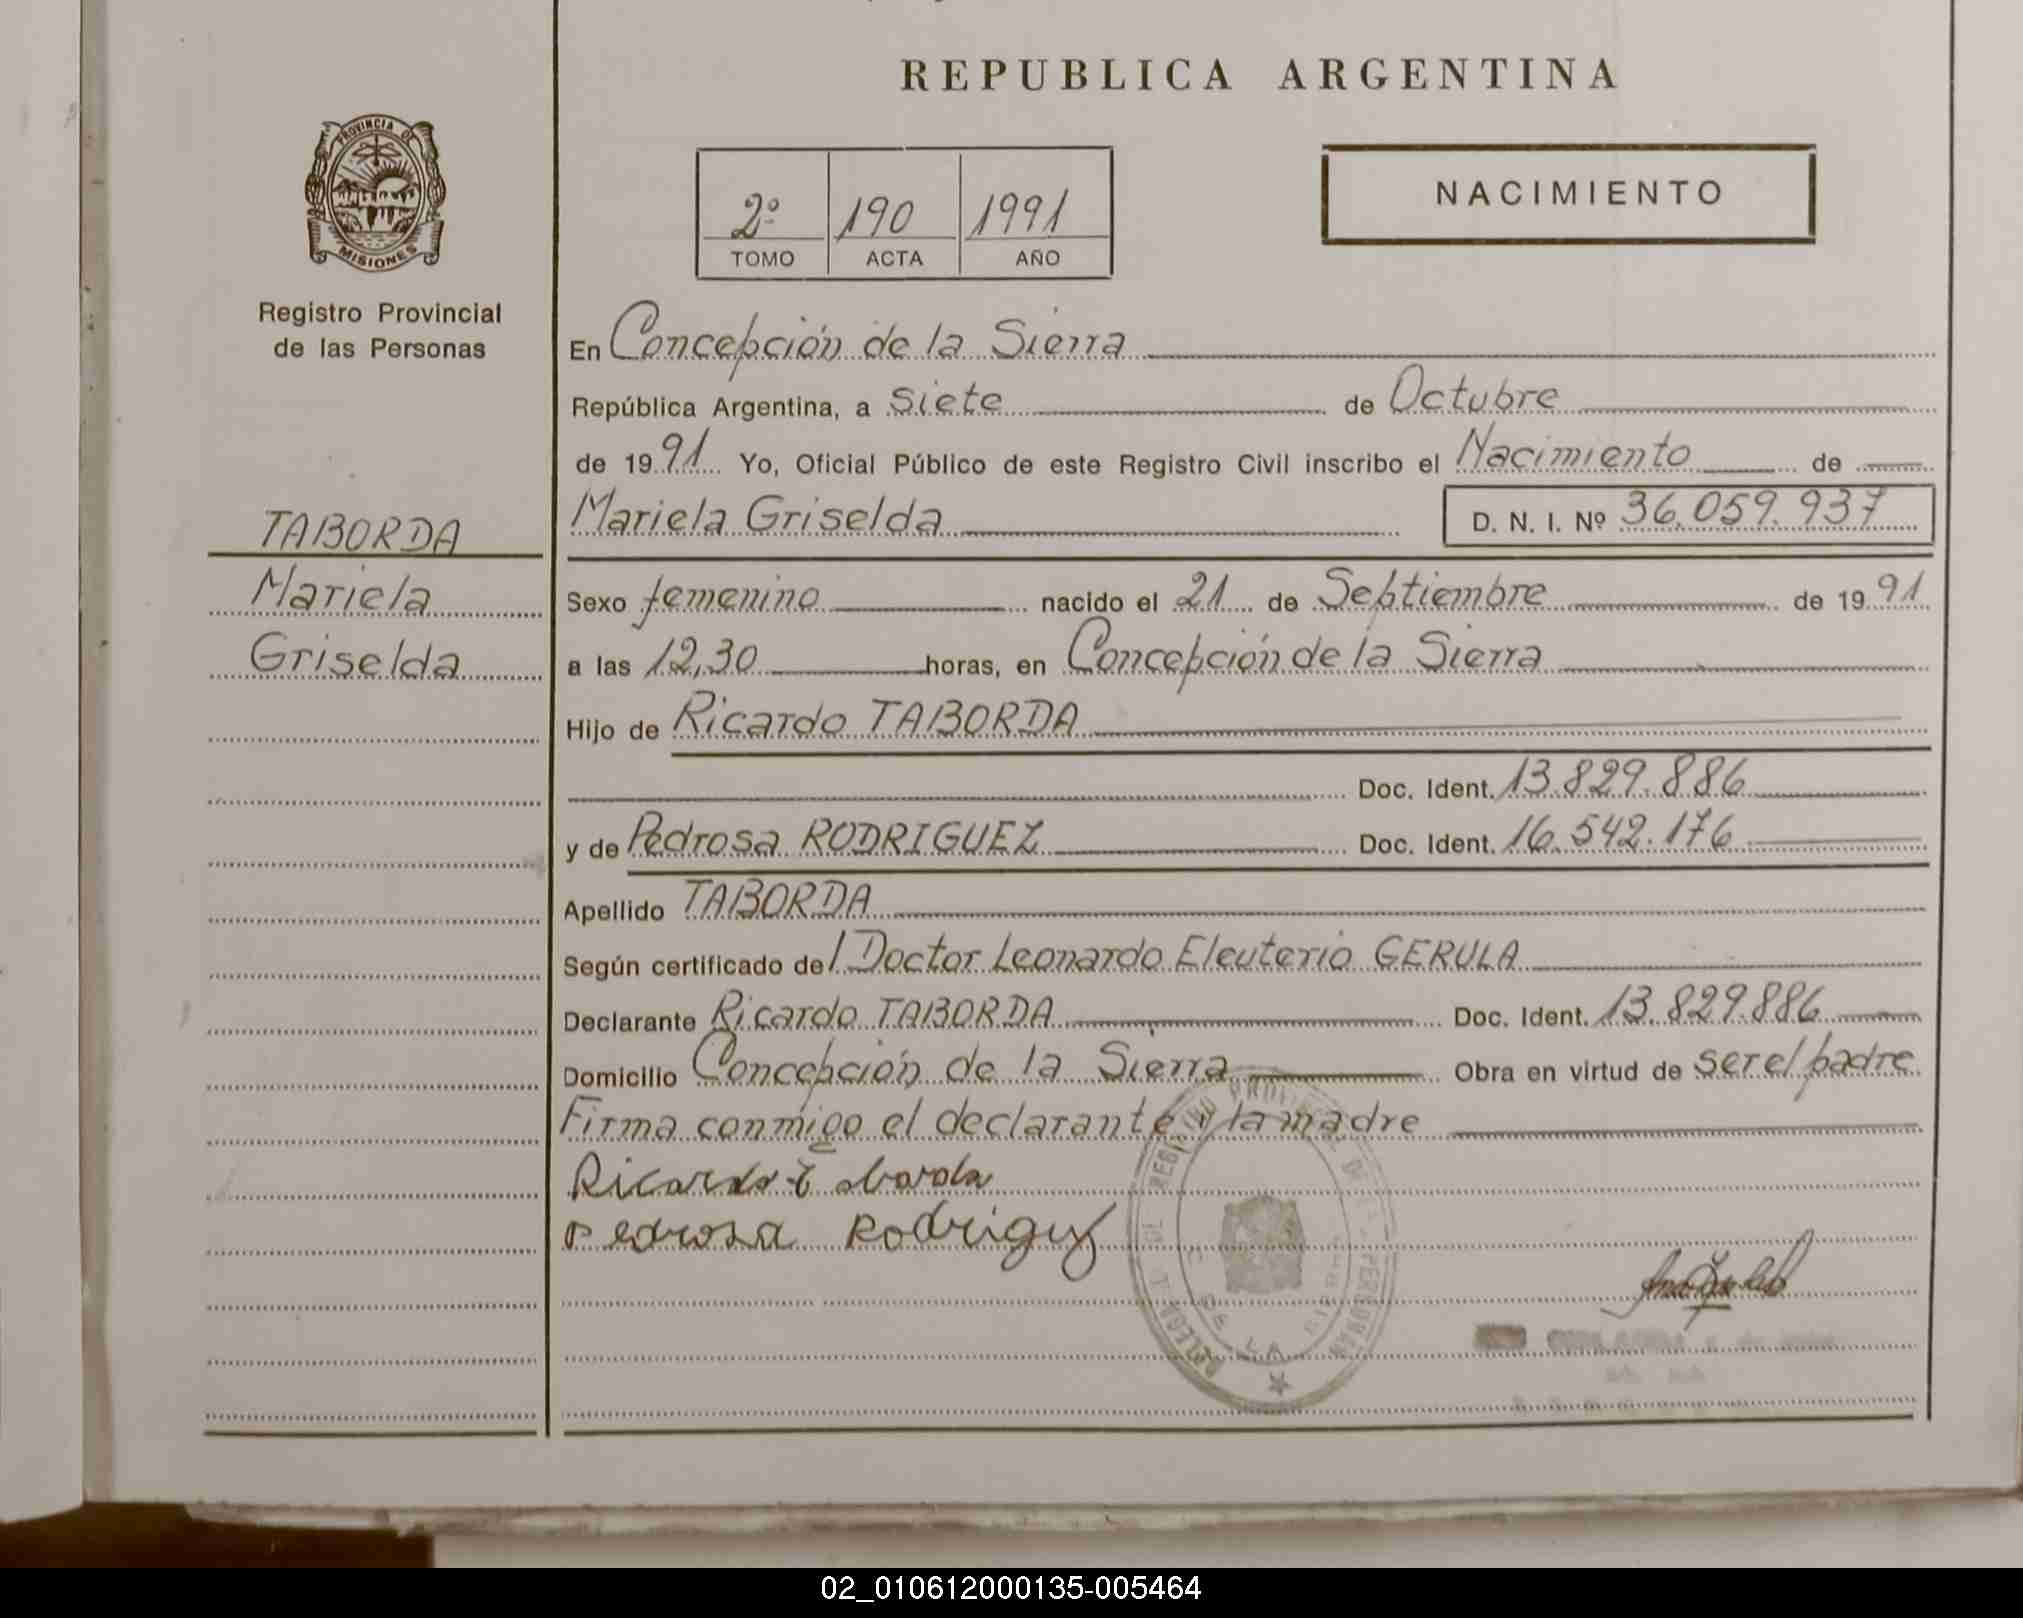 REPUBLICA ARGENTINA
PROVINCIA DE
MISIONES
Registro Provincial
de las Personas
2º 190 1991
TOMO ACTA AÑO
NACIMIENTO
En Concepción de la Sierra
República Argentina, a siete de Octubre
de 1991 Yo, Oficial Público de este Registro Civil inscribo el Nacimiento de
Mariela Griselda D. N. I. Nº 36.059.937
TABORDA
Mariela
Griselda
Sexo femenino nacido el 21 de Septiembre de 1991
a las 12,30 horas, en Concepción de la Sierra
Hijo de Ricardo TABORDA
Doc. Ident. 13.829.886
y de Pedrosa RODRIGUEZ Doc. Ident. 16.542.176
Apellido TABORDA
Según certificado del Doctor Leonardo Eleuterio GERULA
Declarante Ricardo TABORDA Doc. Ident. 13.829.886
Domicilio Concepción de la Sierra Obra en virtud de ser el padre
Firma conmigo el declarante y la madre
Ricardo Taborda
Pedrosa Rodriguez
DE LA
02_010612000135-005464